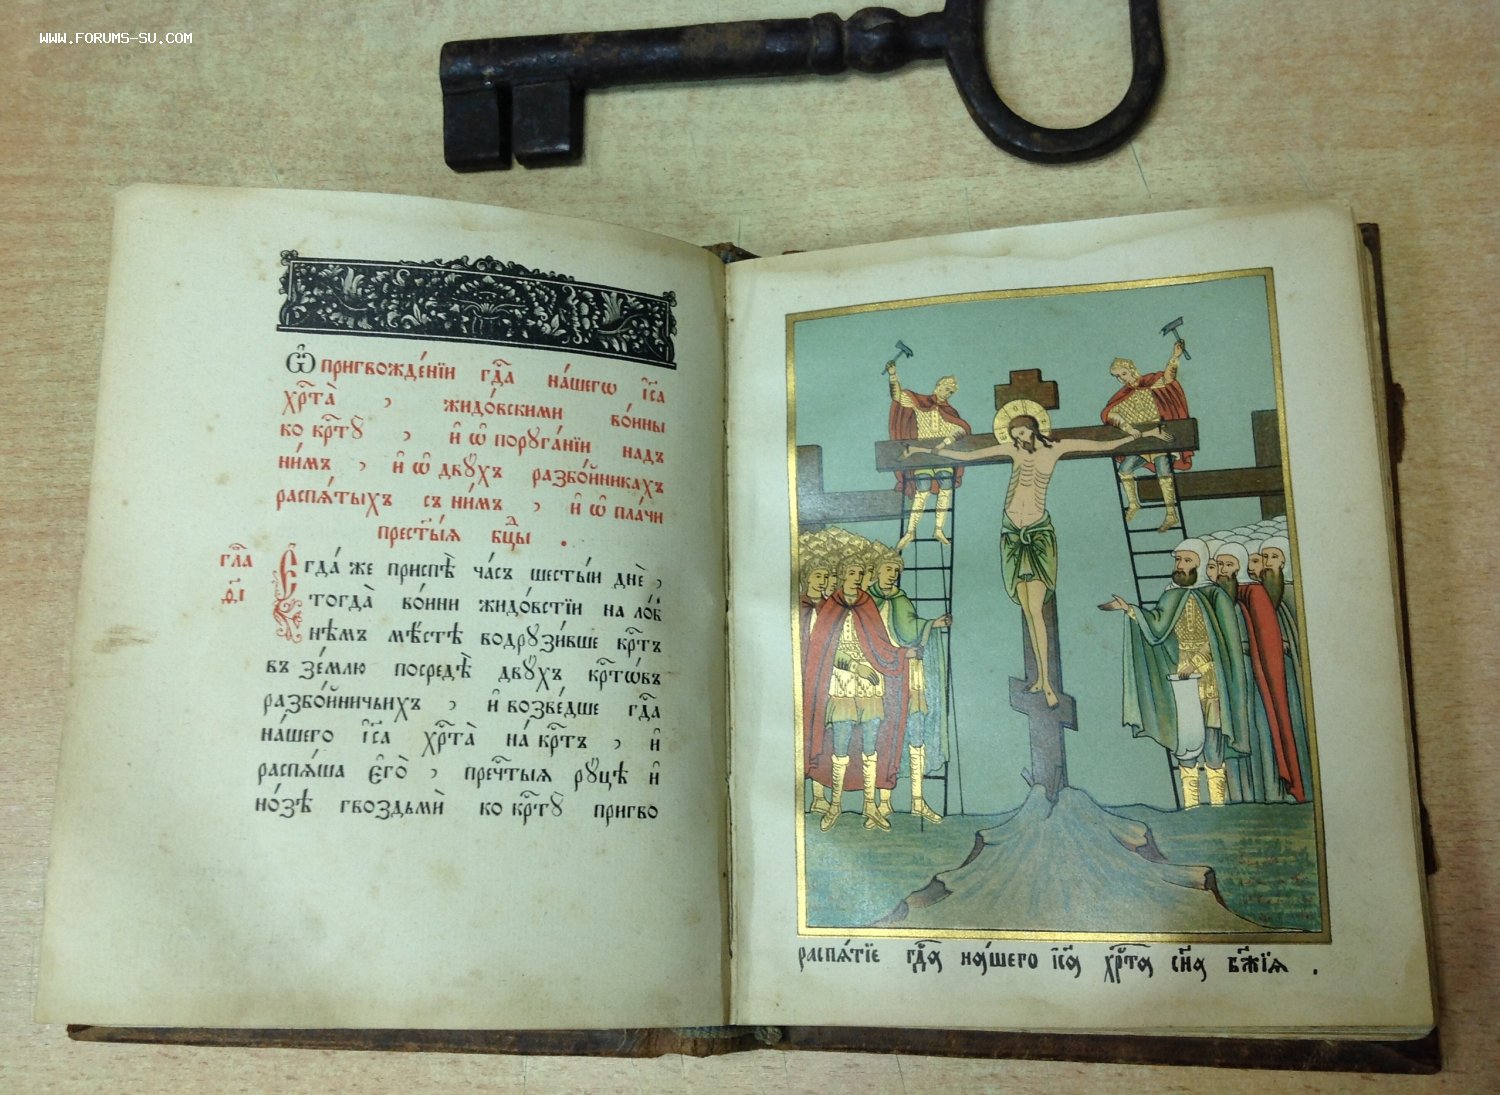 WWW.FORUMS-SU.COM
Ѽ пригвожде́нїи гд҇а на́шегѡ і҆с҃а
хр҇та̀ , жидо́вскими во́ины
ко кр҇тꙋ̀ , и҆ ѡ҆ порꙋга́нїи надъ
ни́мъ , и҆ ѡ҆ двꙋ́хъ разбо́йникахъ
распѧ́тыхъ съ ни́мъ , и҆ ѡ҆ пла́чи
прест҃ы́ѧ бц҃ы .
гла҃
Егда́ же приспѣ̀ ча́съ шесты́и днѐ ,
тогда̀ во́ини жидо́встїи на ло́б
нѣмъ мѣ́стѣ водрꙋзи́вше кр҇тъ
въ зе́млю посредѣ̀ двꙋ́хъ кр҇тѡ́въ
разбо́йничьихъ , и҆ возве́дше гд҇а
на́шего і҆с҃а хр҇та̀ на́ кр҇тъ , и҆
распѧ́ша є҆го̀ , преч҇тыѧ рꙋцѣ и҆
но́зѣ гвоздьмѝ ко кр҇тꙋ̀ пригво
распѧ́тїе гд҇а на́шего і҆с҃а хр҇та сн҃а бж҃їѧ .